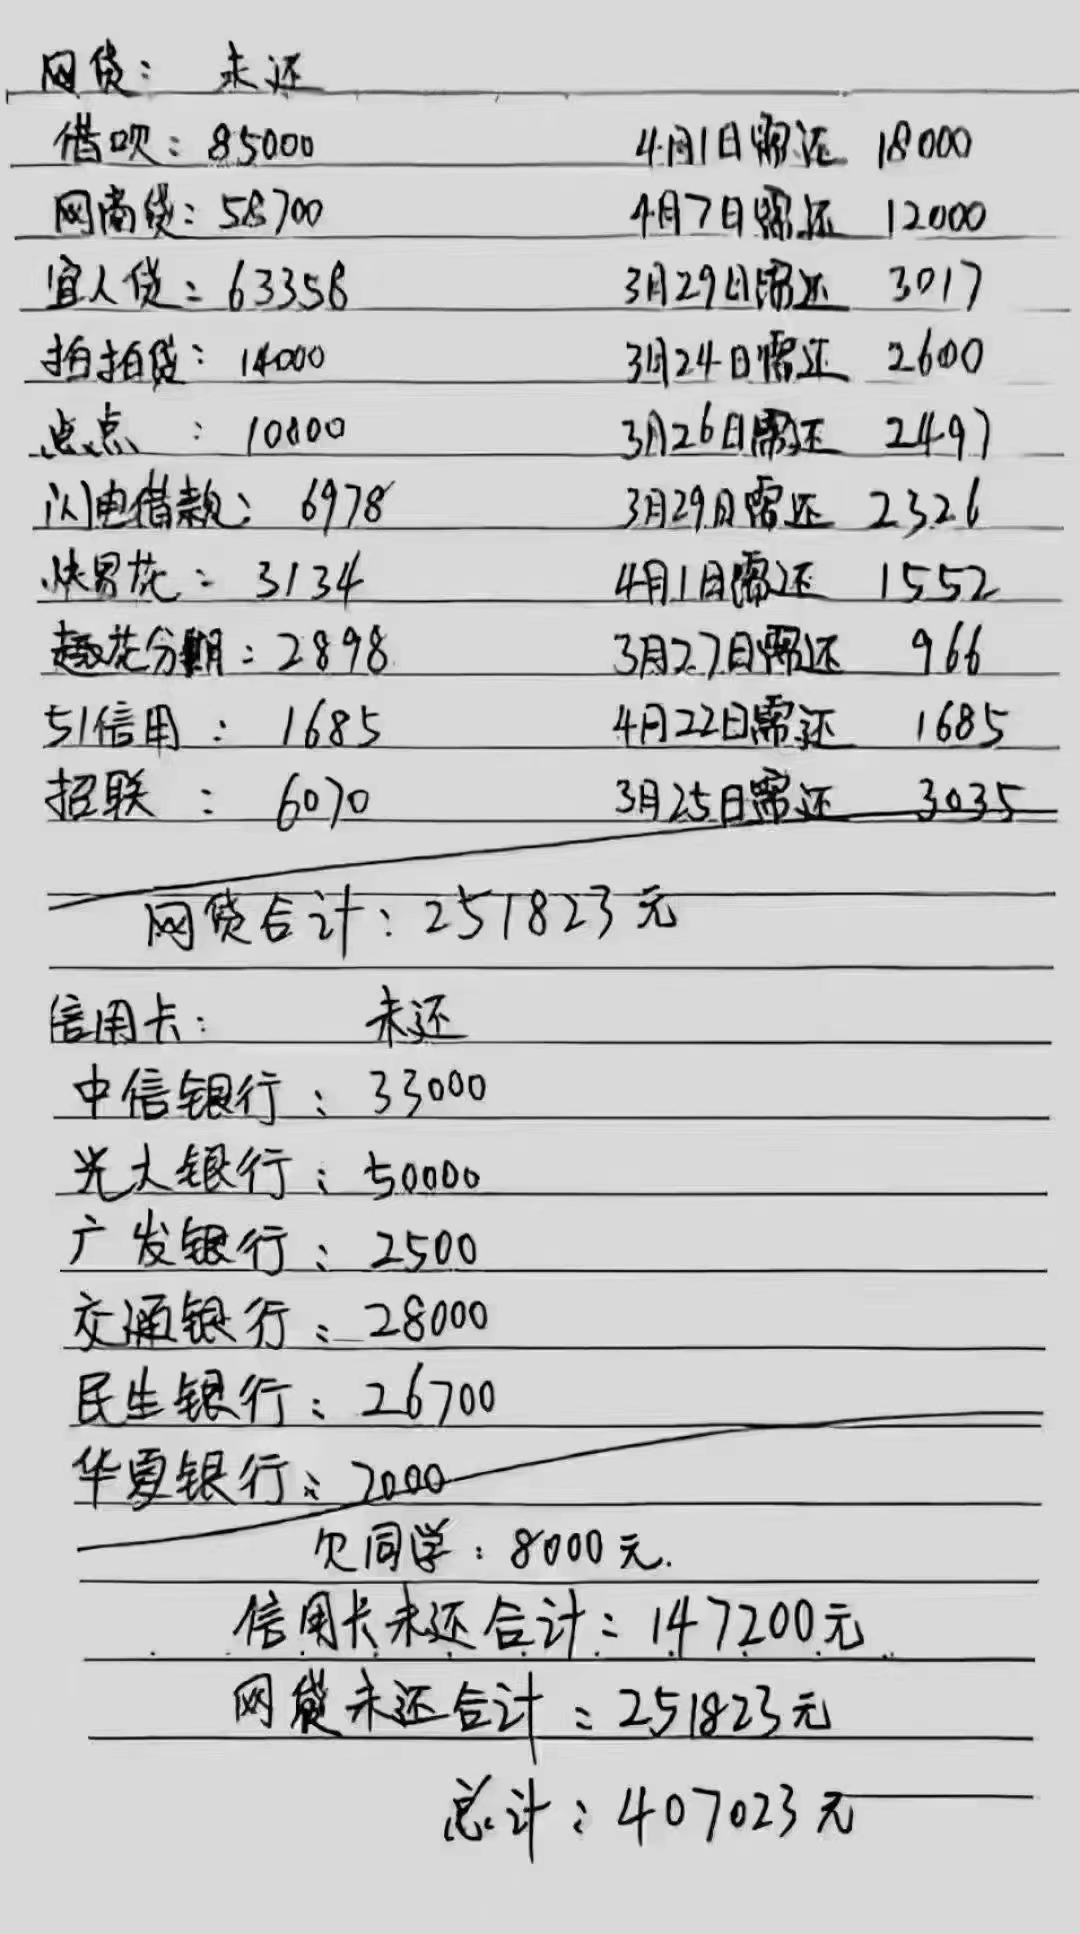 网贷： 未还
借呗：85000 4月1日需还 18000
网商贷：58700 4月7日需还 12000
宜人贷：63358 3月29日需还 3017
拍拍贷：14000 3月24日需还 2600
点点 ：10000 3月26日需还 2497
闪电借款：6978 3月29日需还 2326
快易花：3134 4月1日需还 1552
趣花分期：2898 3月27日需还 966
51信用 ：1685 4月22日需还 1685
招联 ：6070 3月25日需还 3035
网贷合计：251823元
信用卡： 未还
中信银行：33000
光大银行：50000
广发银行：2500
交通银行：28000
民生银行：26700
华夏银行：7000
欠同学：8000元.
信用卡未还合计：147200元
网贷未还合计：251823元
总计：407023元